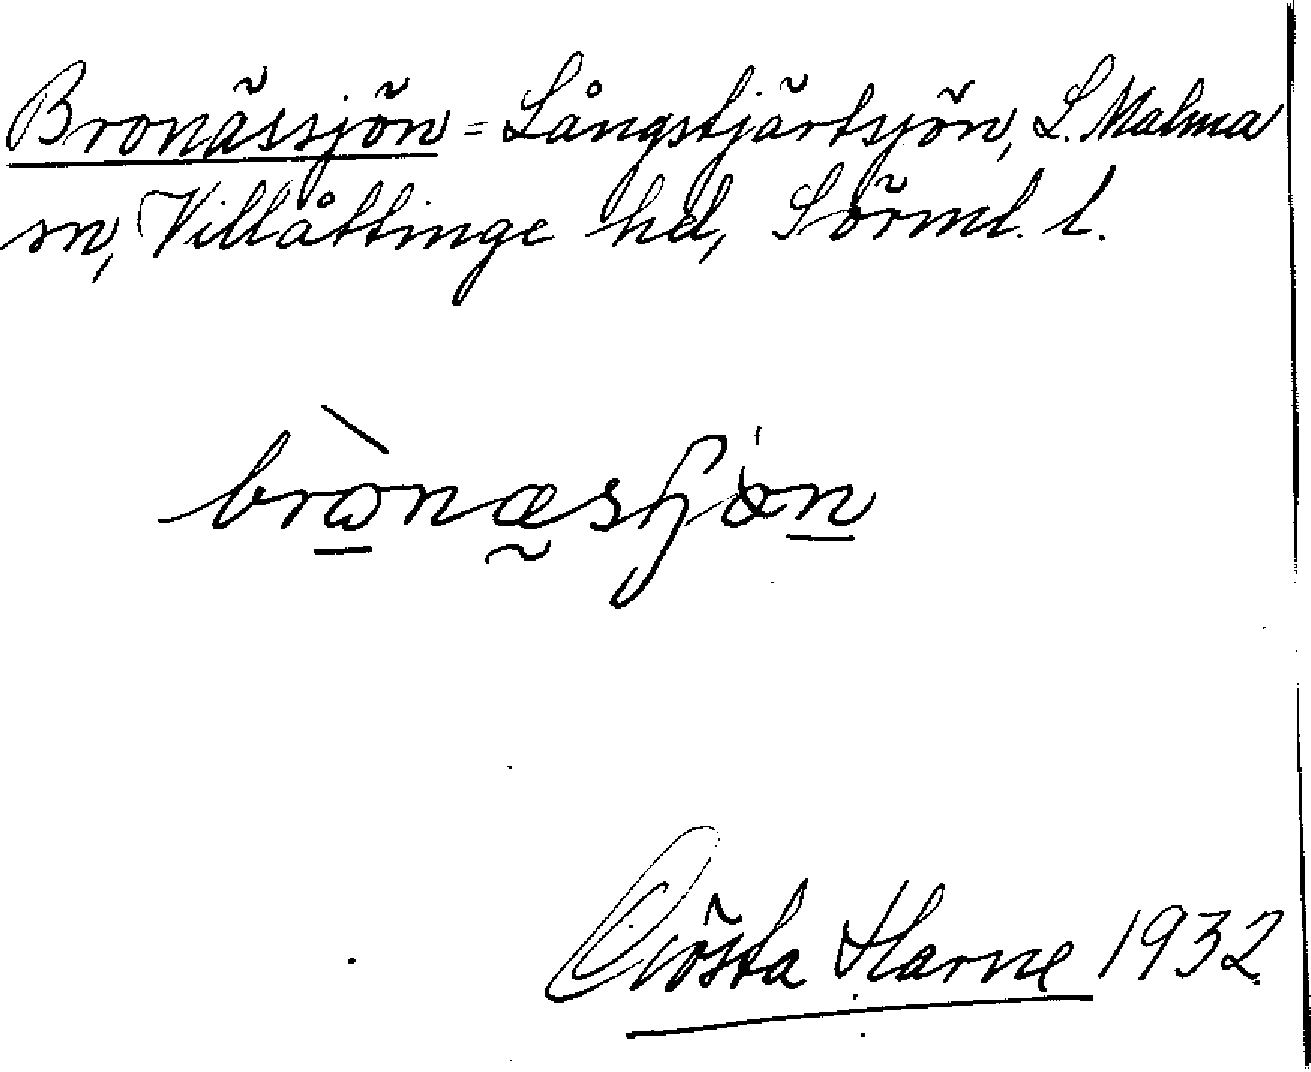 Bronässjön = Långstjärtsjön, L. Malma
sn, Villåttinge hd, Sörml. l.
brònæsjön
Gösta Harne 1932